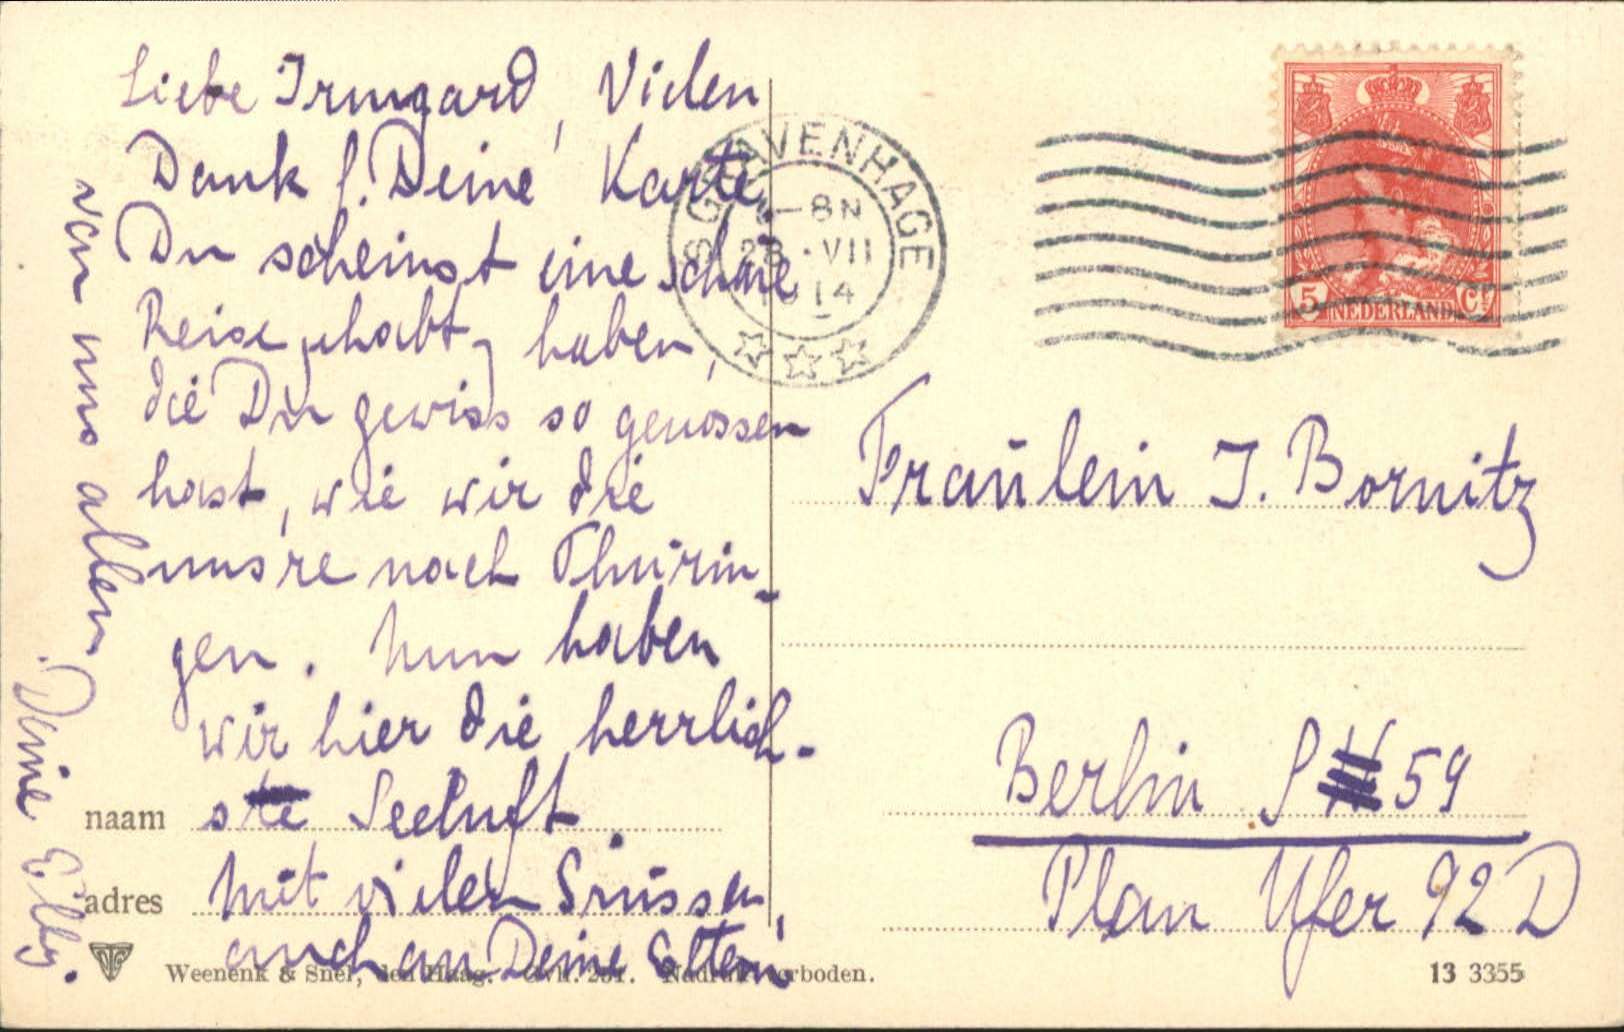 Liebe Irmgard, Vielen
Dank f. Deine Karte.
Du scheinst eine schöne
Reise gehabt z haben,
die Du gewiss so genossen
hast, wie wir die
unsre nach Thürin-
gen. Nun haben
wir hier die herrlich-
ste Seeluft.
Mit vielen Grüssen,
auch an Deine Eltern
von uns allen.
Deine Elly.
naam
adres
Weenenk & Snel, den Haag. Gvh. 251. Nadruk verboden.
'S GRAVENHAGE
-8N
28.VII
1914
5 NEDERLAND Ct
Fraülein I. Bornitz
Berlin S 59
Plan Ufer 92 D
13 3355